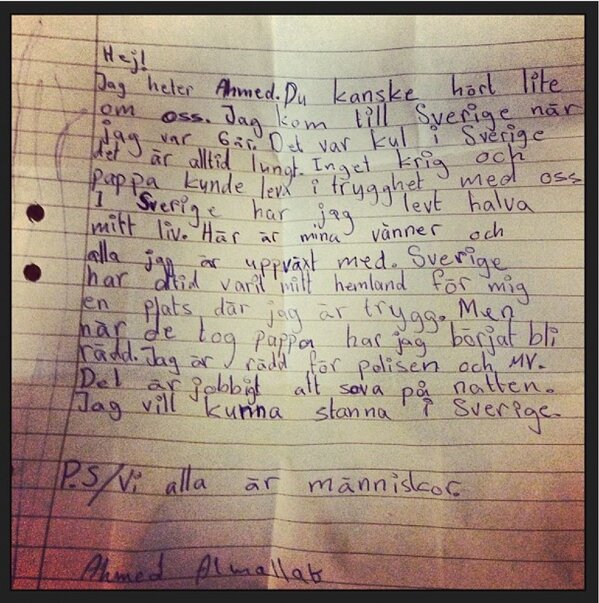 Hej!
Jag heter Ahmed. Du kanske hört lite
om oss. Jag kom till Sverige när
jag var 6år. Det var kul i Sverige
det är alltid lungt. Inget krig och
pappa kunde leva i trygghet med oss
I Sverige har jag levt halva
mitt liv. Här är mina vänner och
alla jag är uppväxt med. Sverige
har altid varit mitt hemland för mig
en plats där jag är trygg. Men
när de tog pappa har jag börjat bli
rädd. Jag är rädd för polisen och MV.
Det är jobbigt att sova på natten.
Jag vill kunna stanna i Sverige.
P.S/Vi alla är människor.
Ahmed Almallak